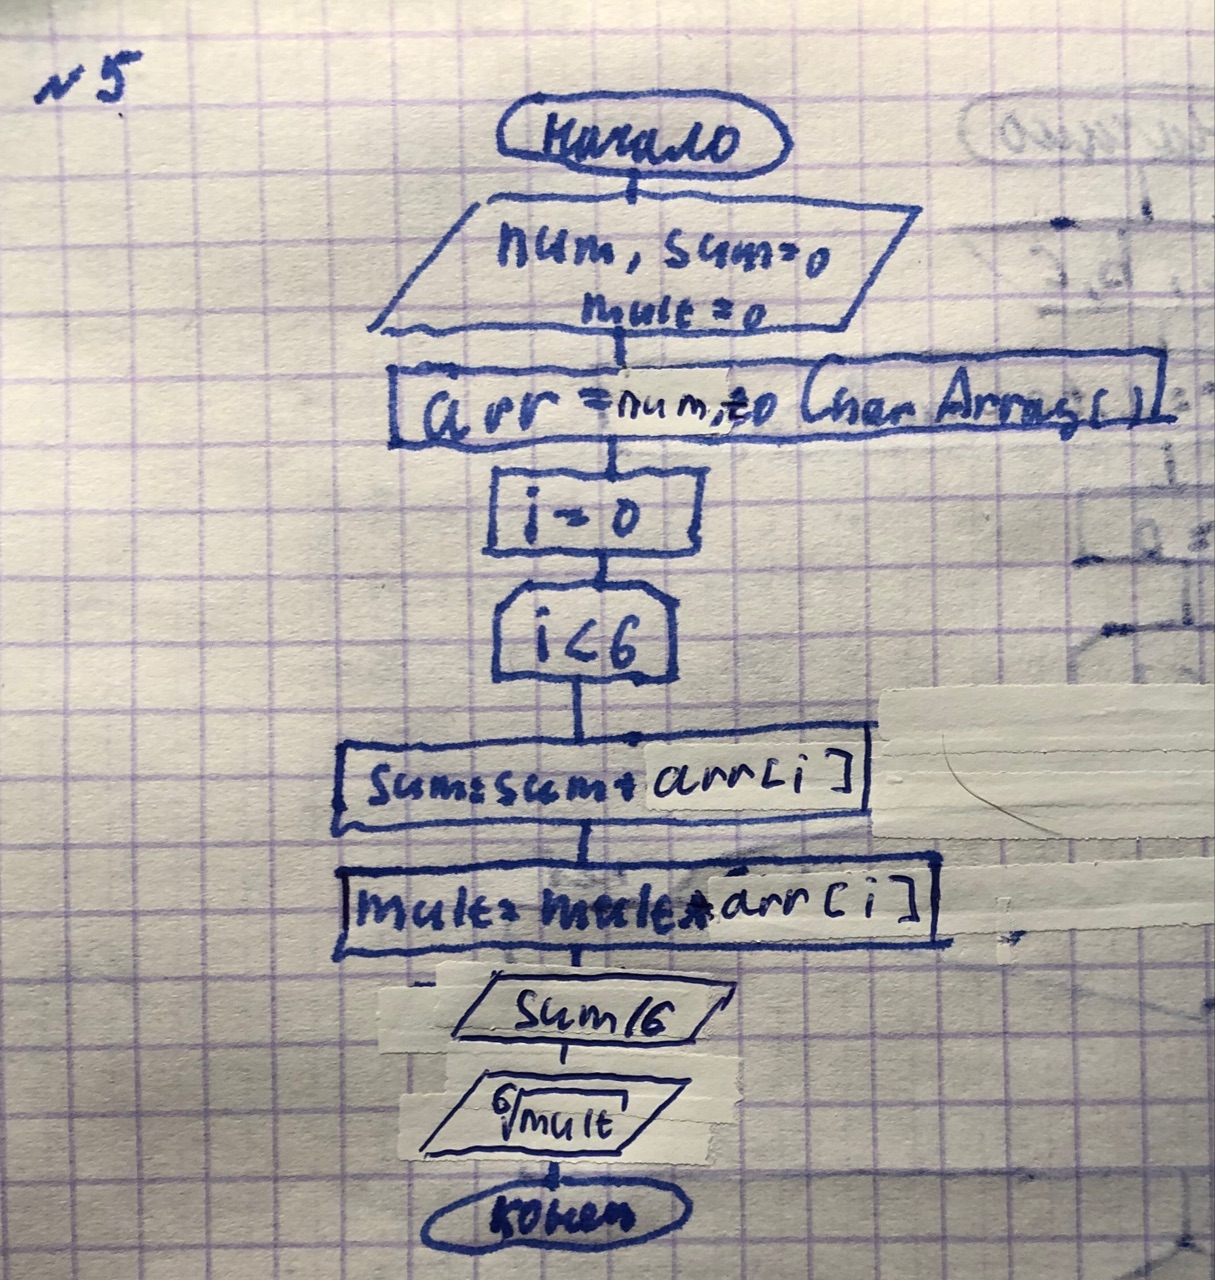 №5
Начало
num, sum=0
mult=0
arr=num.to CharArray()
i=0
i<6
sum=sum+arr[i]
mult=mult*arr[i]
sum/6
⁶√mult
Конец